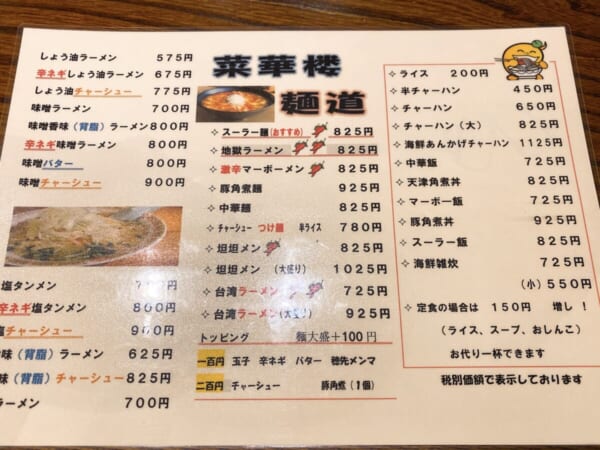 しょう油ラーメン 575円
辛ネギしょう油ラーメン 675円
しょう油チャーシュー 775円
味噌ラーメン 700円
味噌香味（背脂）ラーメン 800円
辛ネギ味噌ラーメン 800円
味噌バター 800円
味噌チャーシュー 900円
塩タンメン
辛ネギ塩タンメン 800円
塩チャーシュー 900円
味（背脂）ラーメン 625円
味（背脂）チャーシュー 825円
ラーメン 700円
菜華楼
麺道
✧ スーラー麺（おすすめ） 825円
✧ 地獄ラーメン 825円
✧ 激辛マーボーメン 825円
✧ 豚角煮麺 925円
✧ 中華麺 825円
✧ チャーシューつけ麺 半ライス 780円
✧ 坦坦メン 825円
✧ 坦坦メン （大盛り） 1025円
✧ 台湾ラーメン 725円
✧ 台湾ラーメン（大盛り） 925円
トッピング 麺大盛＋100円
一百円 玉子 辛ネギ バター 穂先メンマ
二百円 チャーシュー 豚角煮（1個）
✧ ライス 200円
✧ 半チャーハン 450円
✧ チャーハン 650円
✧ チャーハン（大） 825円
✧ 海鮮あんかけチャーハン 1125円
✧ 中華飯 725円
✧ 天津角煮丼 825円
✧ マーボー飯 725円
✧ 豚角煮丼 925円
✧ スーラー飯 825円
✧ 海鮮雑炊 725円
（小）550円
✧ 定食の場合は 150円 増し！
（ライス、スープ、おしんこ）
お代り一杯できます
税別価額で表示しております